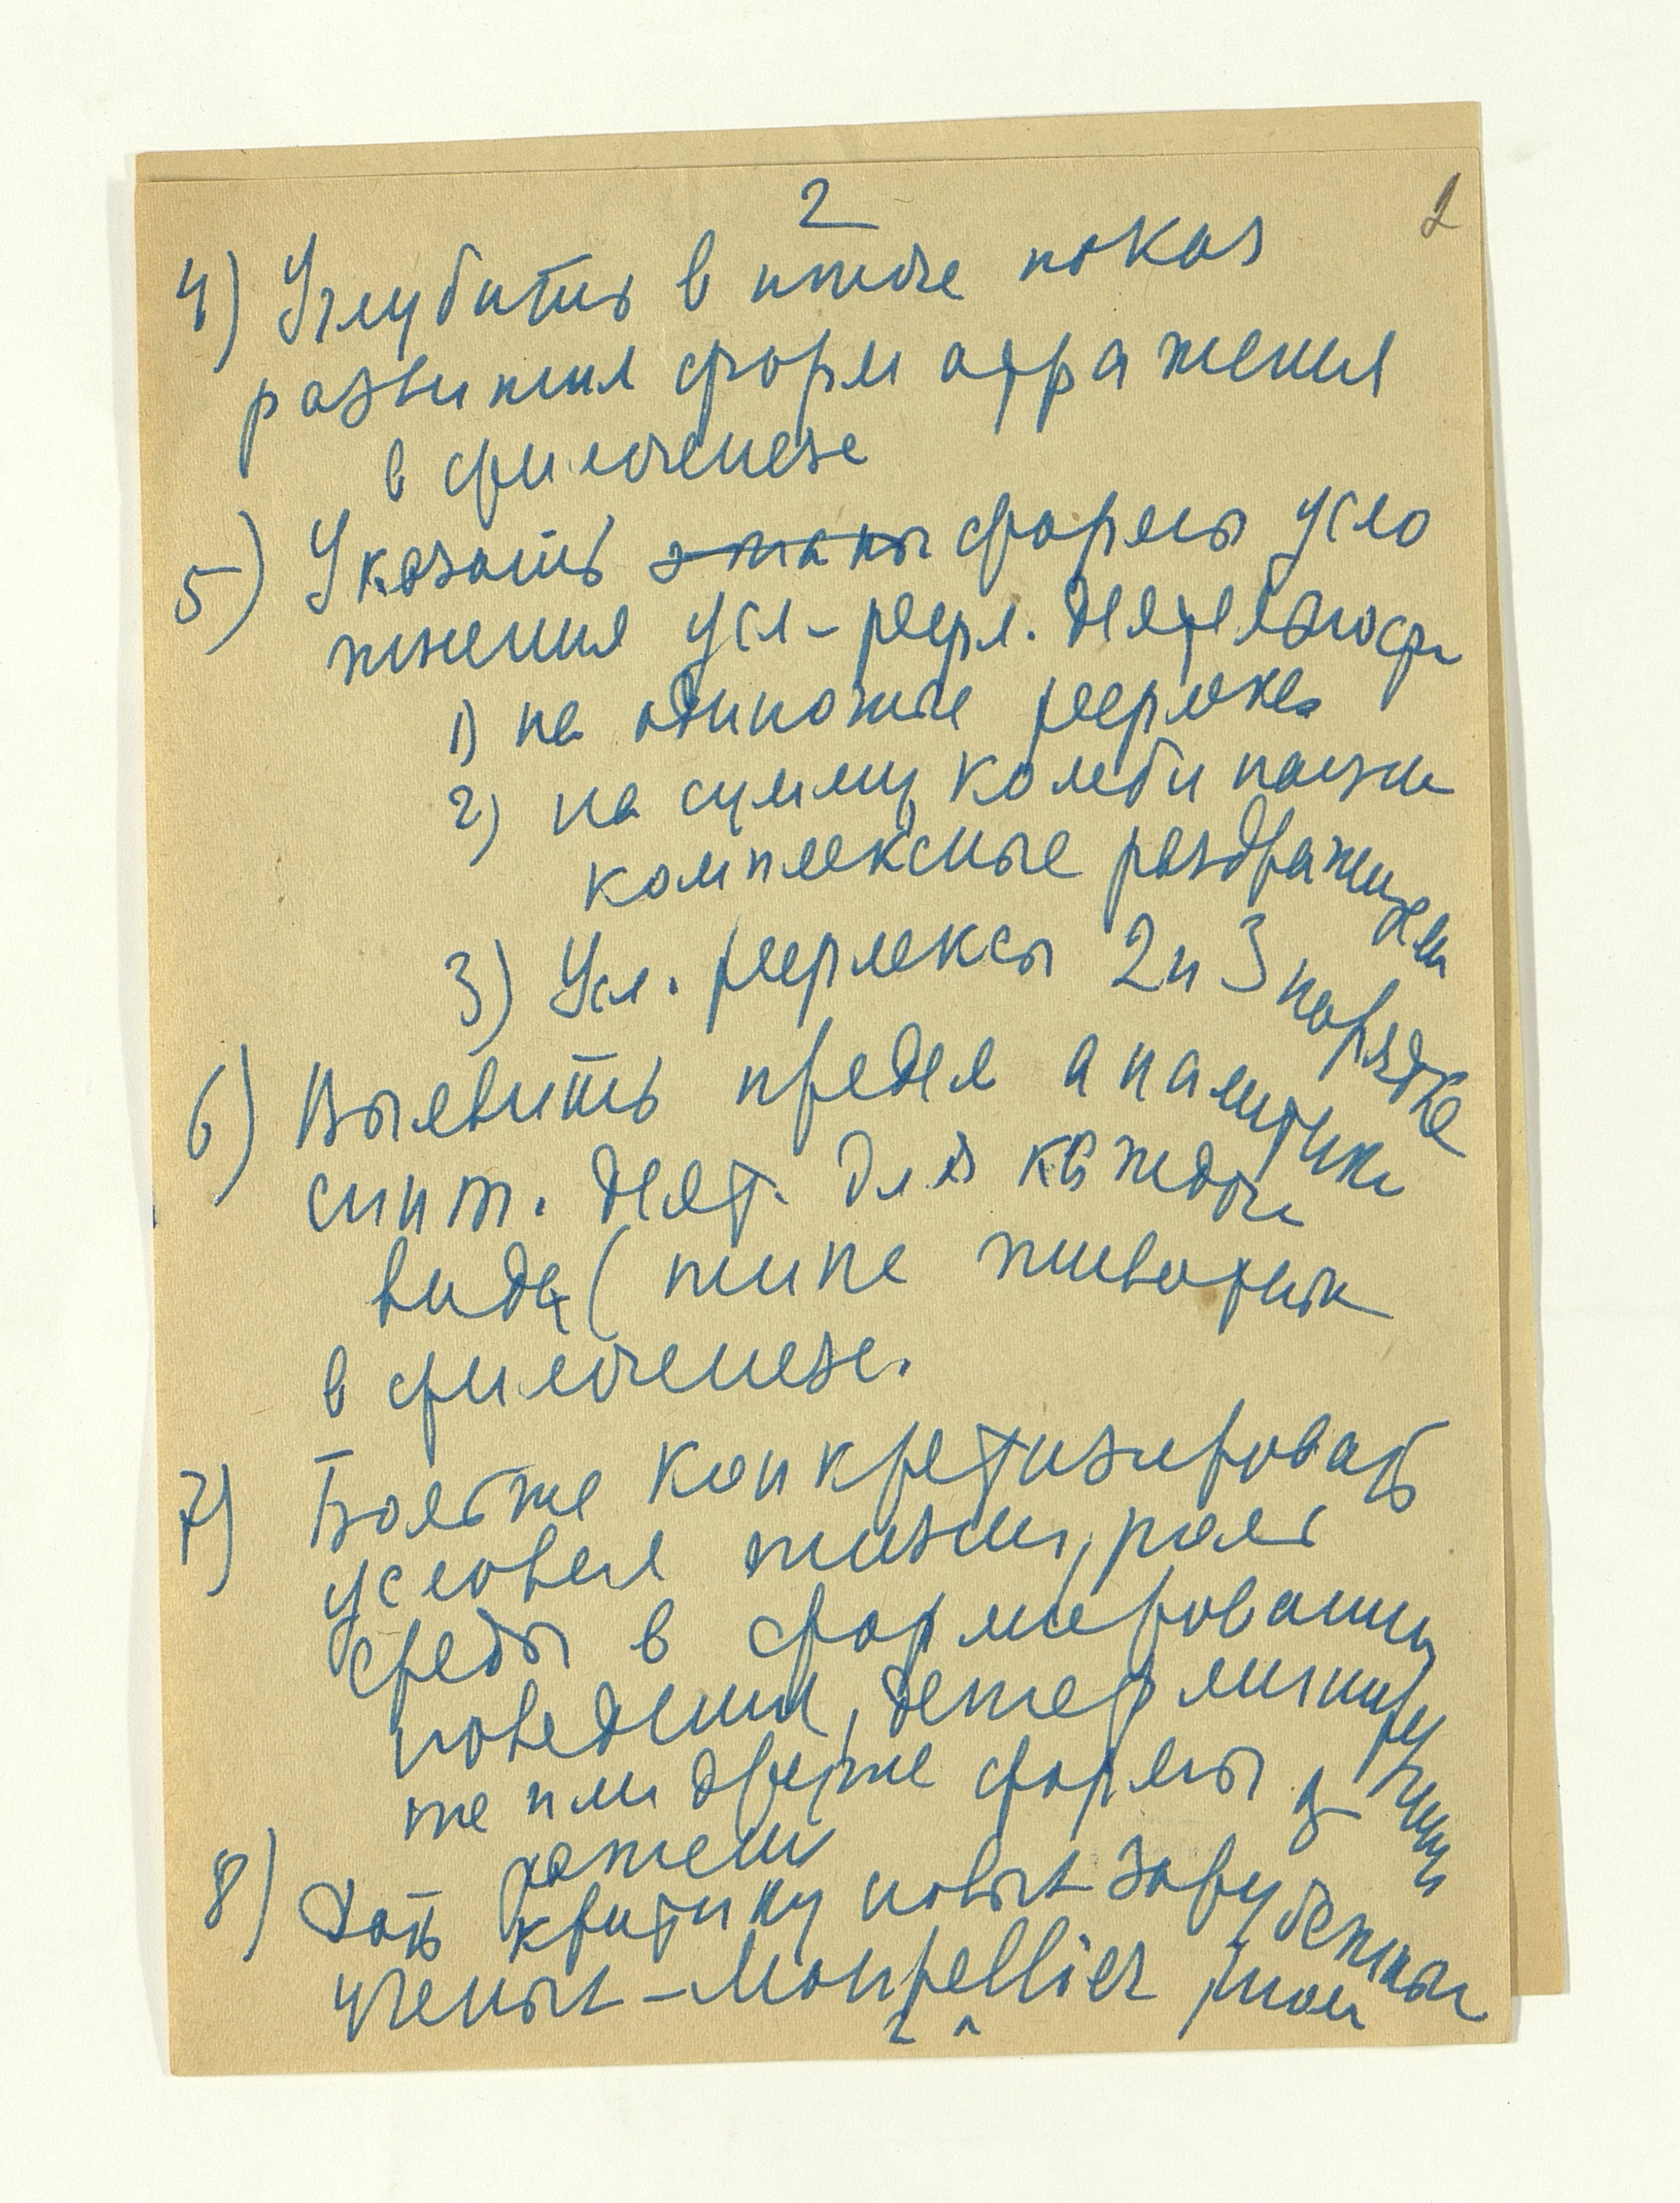 2
2
4) Углубить в итоге показ
развития форм отражения
в филогенезе
5) Указать этапы формы усло
жнения усл-рефл. деятельности
1) на одиночные рефлекс
2) на сумму, комбинации
комплексные раздражители
3) Усл. рефлексы 2 и 3 порядка
6) Выявить предел аналитико
синт. деят. для каждого
вида (типа животных
в филогенезе.
7) Больше конкретизировать
условия жизни, роль
среды в формировании
поведения, детерминирующий
те или другие формы
8) Дать критику новых зарубежных
ученых – Монpellier